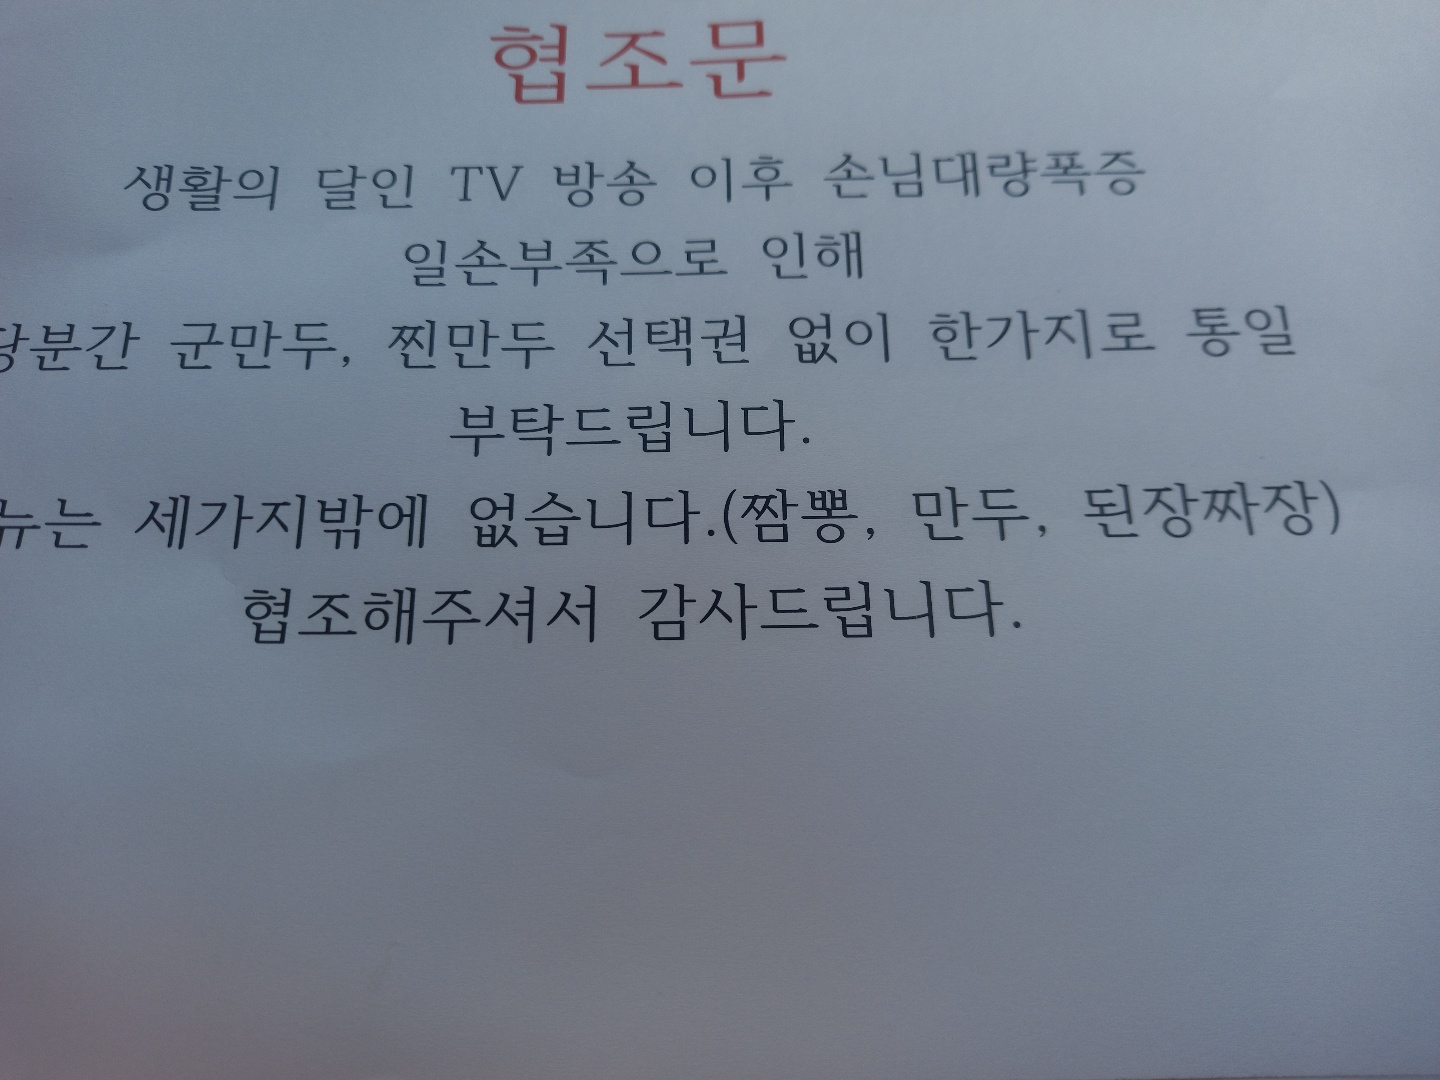 협조문
생활의 달인 TV 방송 이후 손님대량폭증
일손부족으로 인해
당분간 군만두, 찐만두 선택권 없이 한가지로 통일
부탁드립니다.
뉴는 세가지밖에 없습니다.(짬뽕, 만두, 된장짜장)
협조해주셔서 감사드립니다.